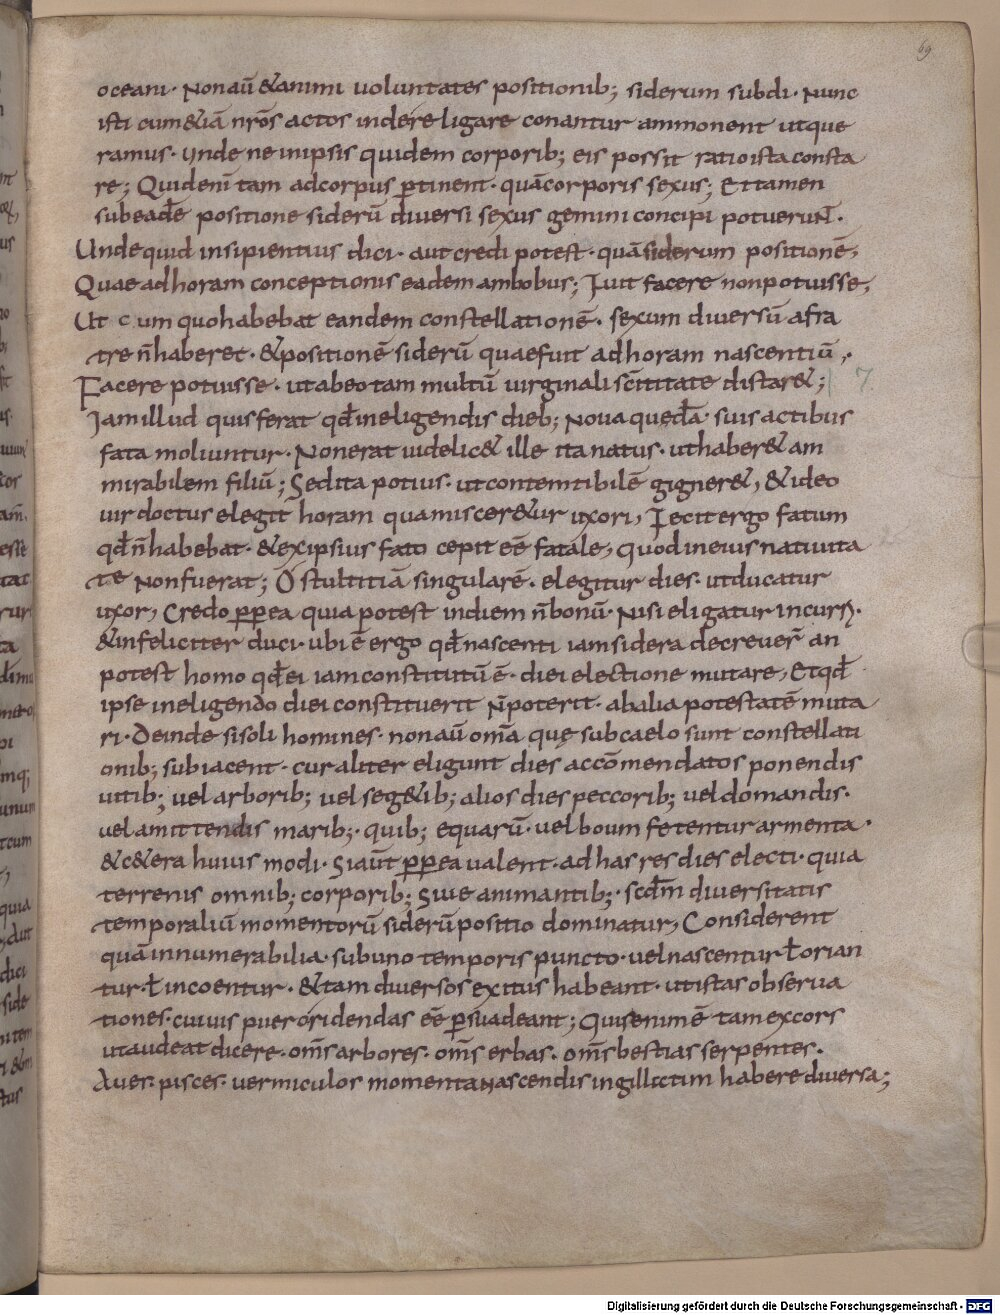 69
oceani· Nonaū &animi uoluntates positionib; siderum subdi· Nunc
isti cum&iā nr̄os actos indereligare conantur ammonent utque
ramus· Unde neinipsis quidem corporib; eis possit ratioista consta
re; Quidenī tam adcorpus ꝑtinent· quācorporis sexus; Ettamen
subeadē positione siderū diversi sexus gemini concipi potuerunt·
Undequid insipientius dici· autcredi potest· quāsiderum positionē,
Quae adhoram conceptionis eadem ambobus; Fuit facere nonpotuisse,
Ut cum quohabebat eandem constellationē· sexum diuersū afra
tre n̄haberet· &positionē siderū quaefuit adhoram nascentiū,·
Facere potuisse· utabeotam multū uirginali sc̄titate distar&; 7
Jamillud quisferat qđineligendis dieb; Noua quędā· suis actibus
fata moliuntur· Nonerat uidelic& ille itanatus· uthaber& am
mirabilem filiū; Sedita potius· utcontemtibilē gigner&, &ideo
uir doctus elegit horam quamiscer&ur uxori, Fecitergo fatum
qđn̄habebat· &exipsius fato cepit eē fatale, quodineius natiuita
te Nonfuerat; O stultitiā singularē· elegitur dies· utducatur
uxor, Credo ꝓpea quia potest indiem n̄bonū· Nisi eligatur incurr̄·
&infeliciter duci· ubi ē ergo qđnascenti iamsidera decreuer̄ an
potest homo qđei iamconstitutū ē· diei electione mutare, Etqđ
ipse ineligendo diei constituerit n̄poterit· abalia potestatē muta
ri· Deinde sisoli homines· nonaū om̄a quę subcaelo sunt constellati
onib; subiacent· cur aliter eligunt dies accōmendatos ponendis
uitib; uel arborib; uel seg&ib; alios dies peccorib; uel domandis·
uel amittendis marib;· quib; equarū· uel boum fetentur armenta·
&c&era huius modi· Siaūt ꝓpea ualent· ad has res dies electi· quia
terrenis omnib; corporib; Siue animantib;· scđm diuersitatis
temporaliū momentorū siderūpositio dominatur, Considerent
quāinnumerabilia· subuno temporis puncto· uelnascenturƚorian
turƚ incoentur· &tam diuersos exitus habeant· utistas obserua
tiones· cuiuis pueroridendas eē ꝑsuadeant; Quisenimē tamexcors
utaudeat dicere· om̄s arbores· om̄s erbas· om̄s bestias serpentes·
Aues· pisces· uermiculos momenta Nascendisingillictim habere diuersa;
Digitalisierung gefördert durch die Deutsche Forschungsgemeinschaft - DFG